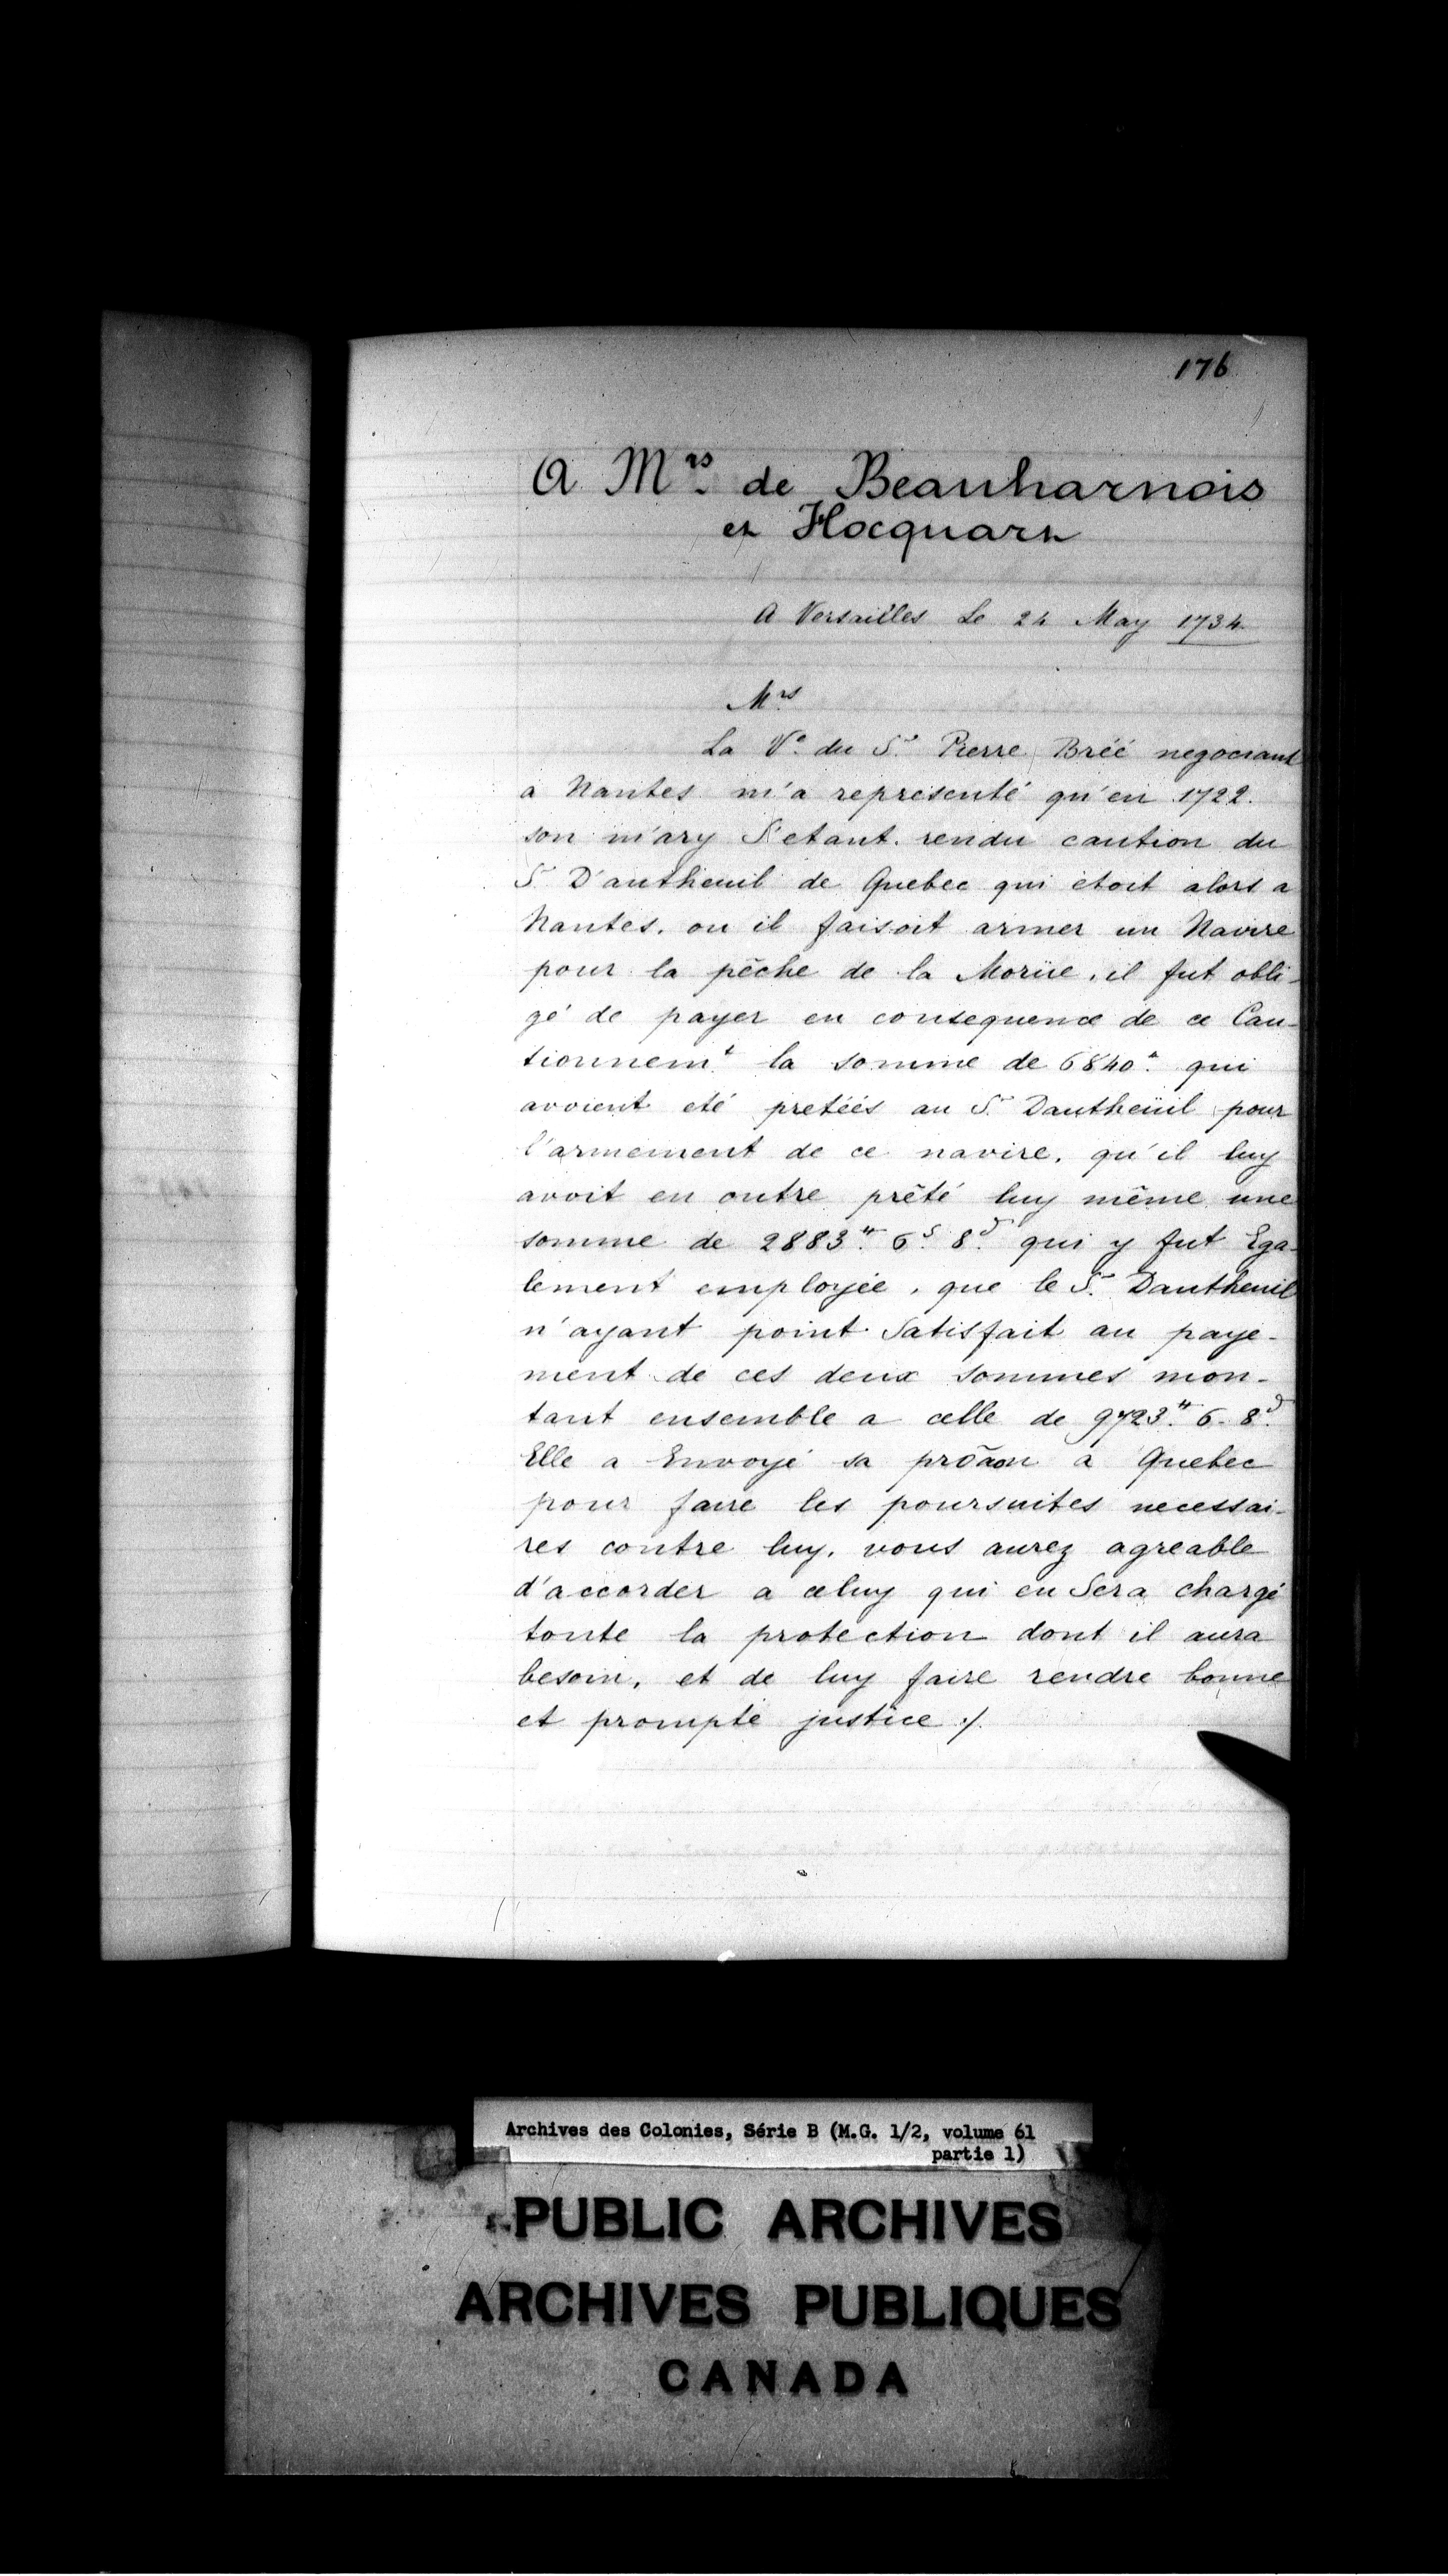 176
A Mrs. de Beauharnois
et Hocquart
A Versailles Le 24 May 1734.
Mrs.
La Ve. du Sr. Pierre Bréé negociant
a Nantes m'a representé qu'en 1722.
son mary S'etant rendu caution du
Sr. D'autheuil de Quebec qui étoit alors a
Nantes. ou il faisoit armer un Navire
pour la pêche de la Morüe, il fut obli-
gé de payer en consequence de ce Cau-
tionnemt. la somme de 6840tt. qui
avoient eté pretéés au Sr. Dautheüil pour
l'armement de ce navire, qu'il luy
avoit en outre prêté luy même une
somme de 2883tt. 6s. 8d. qui y fut Ega-
lement employée, que le Sr. Dautheuil
n'ayant point Satisfait au paye-
ment de ces deux sommes mon-
tant ensemble a celle de 9723tt. 6. 8d.
Elle a Envoyé sa prõaon a Quebec
pour faire les poursuites necessai-
res contre luy. vous aurez agreable
d'accorder a celuy qui en Sera chargé
toute la protection dont il aura
besoin, et de luy faire rendre bonne
et prompte justice ./.
Archives des Colonies, Série B (M.G. 1/2, volume 61
partie 1)
PUBLIC ARCHIVES
ARCHIVES PUBLIQUES
CANADA